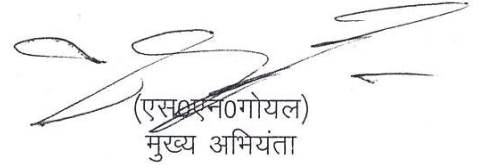 (एस0एन0गोयल)
मुख्य अभियंता